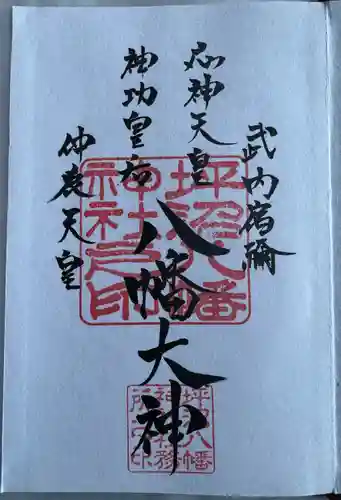 武内宿禰
応神天皇
八幡大神
神功皇后
仲哀天皇
坪沼八幡
神社之印
坪沼八幡
神社社務
所之印